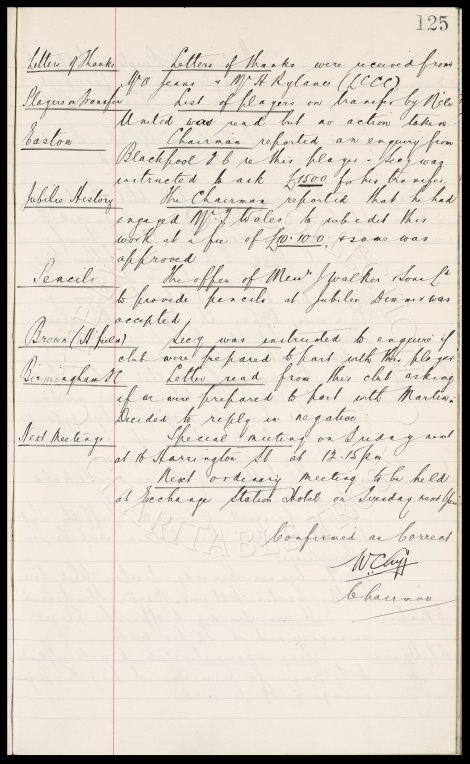 125
Letters of Thanks Letters of thanks were received from
Mr O Jeans & Mr H Rylance (LCCC)
Players on Transfer List of players on transfer by N'cle
United was read but no action taken
Easton Chairman reported an enquiry from
Blackpool F C re this player - Secy was
instructed to ask £1500 for his transfer.
Jubilee History The Chairman reported that he had
engaged Mr J Wales to subedit this
work at a fee of £10.10.0, & same was
approved
Pencils The offer of Messrs J Walker & Sons Ld
to provide pencils at Jubilee Dinner was
accepted
Brown (H'field) Secy was instructed to enquire if
club were prepared to part with this player
Birmingham FC Letter read from this club asking
if we were prepared to part with Martin.
Decided to reply in negative
Next Meetings Special meeting on Friday next
at 16 Harrington St at 12.15pm
Next ordinary meeting to be held
at Exchange Station Hotel on Tuesday next
Confirmed as Correct
W.C.Cuff
Chairman